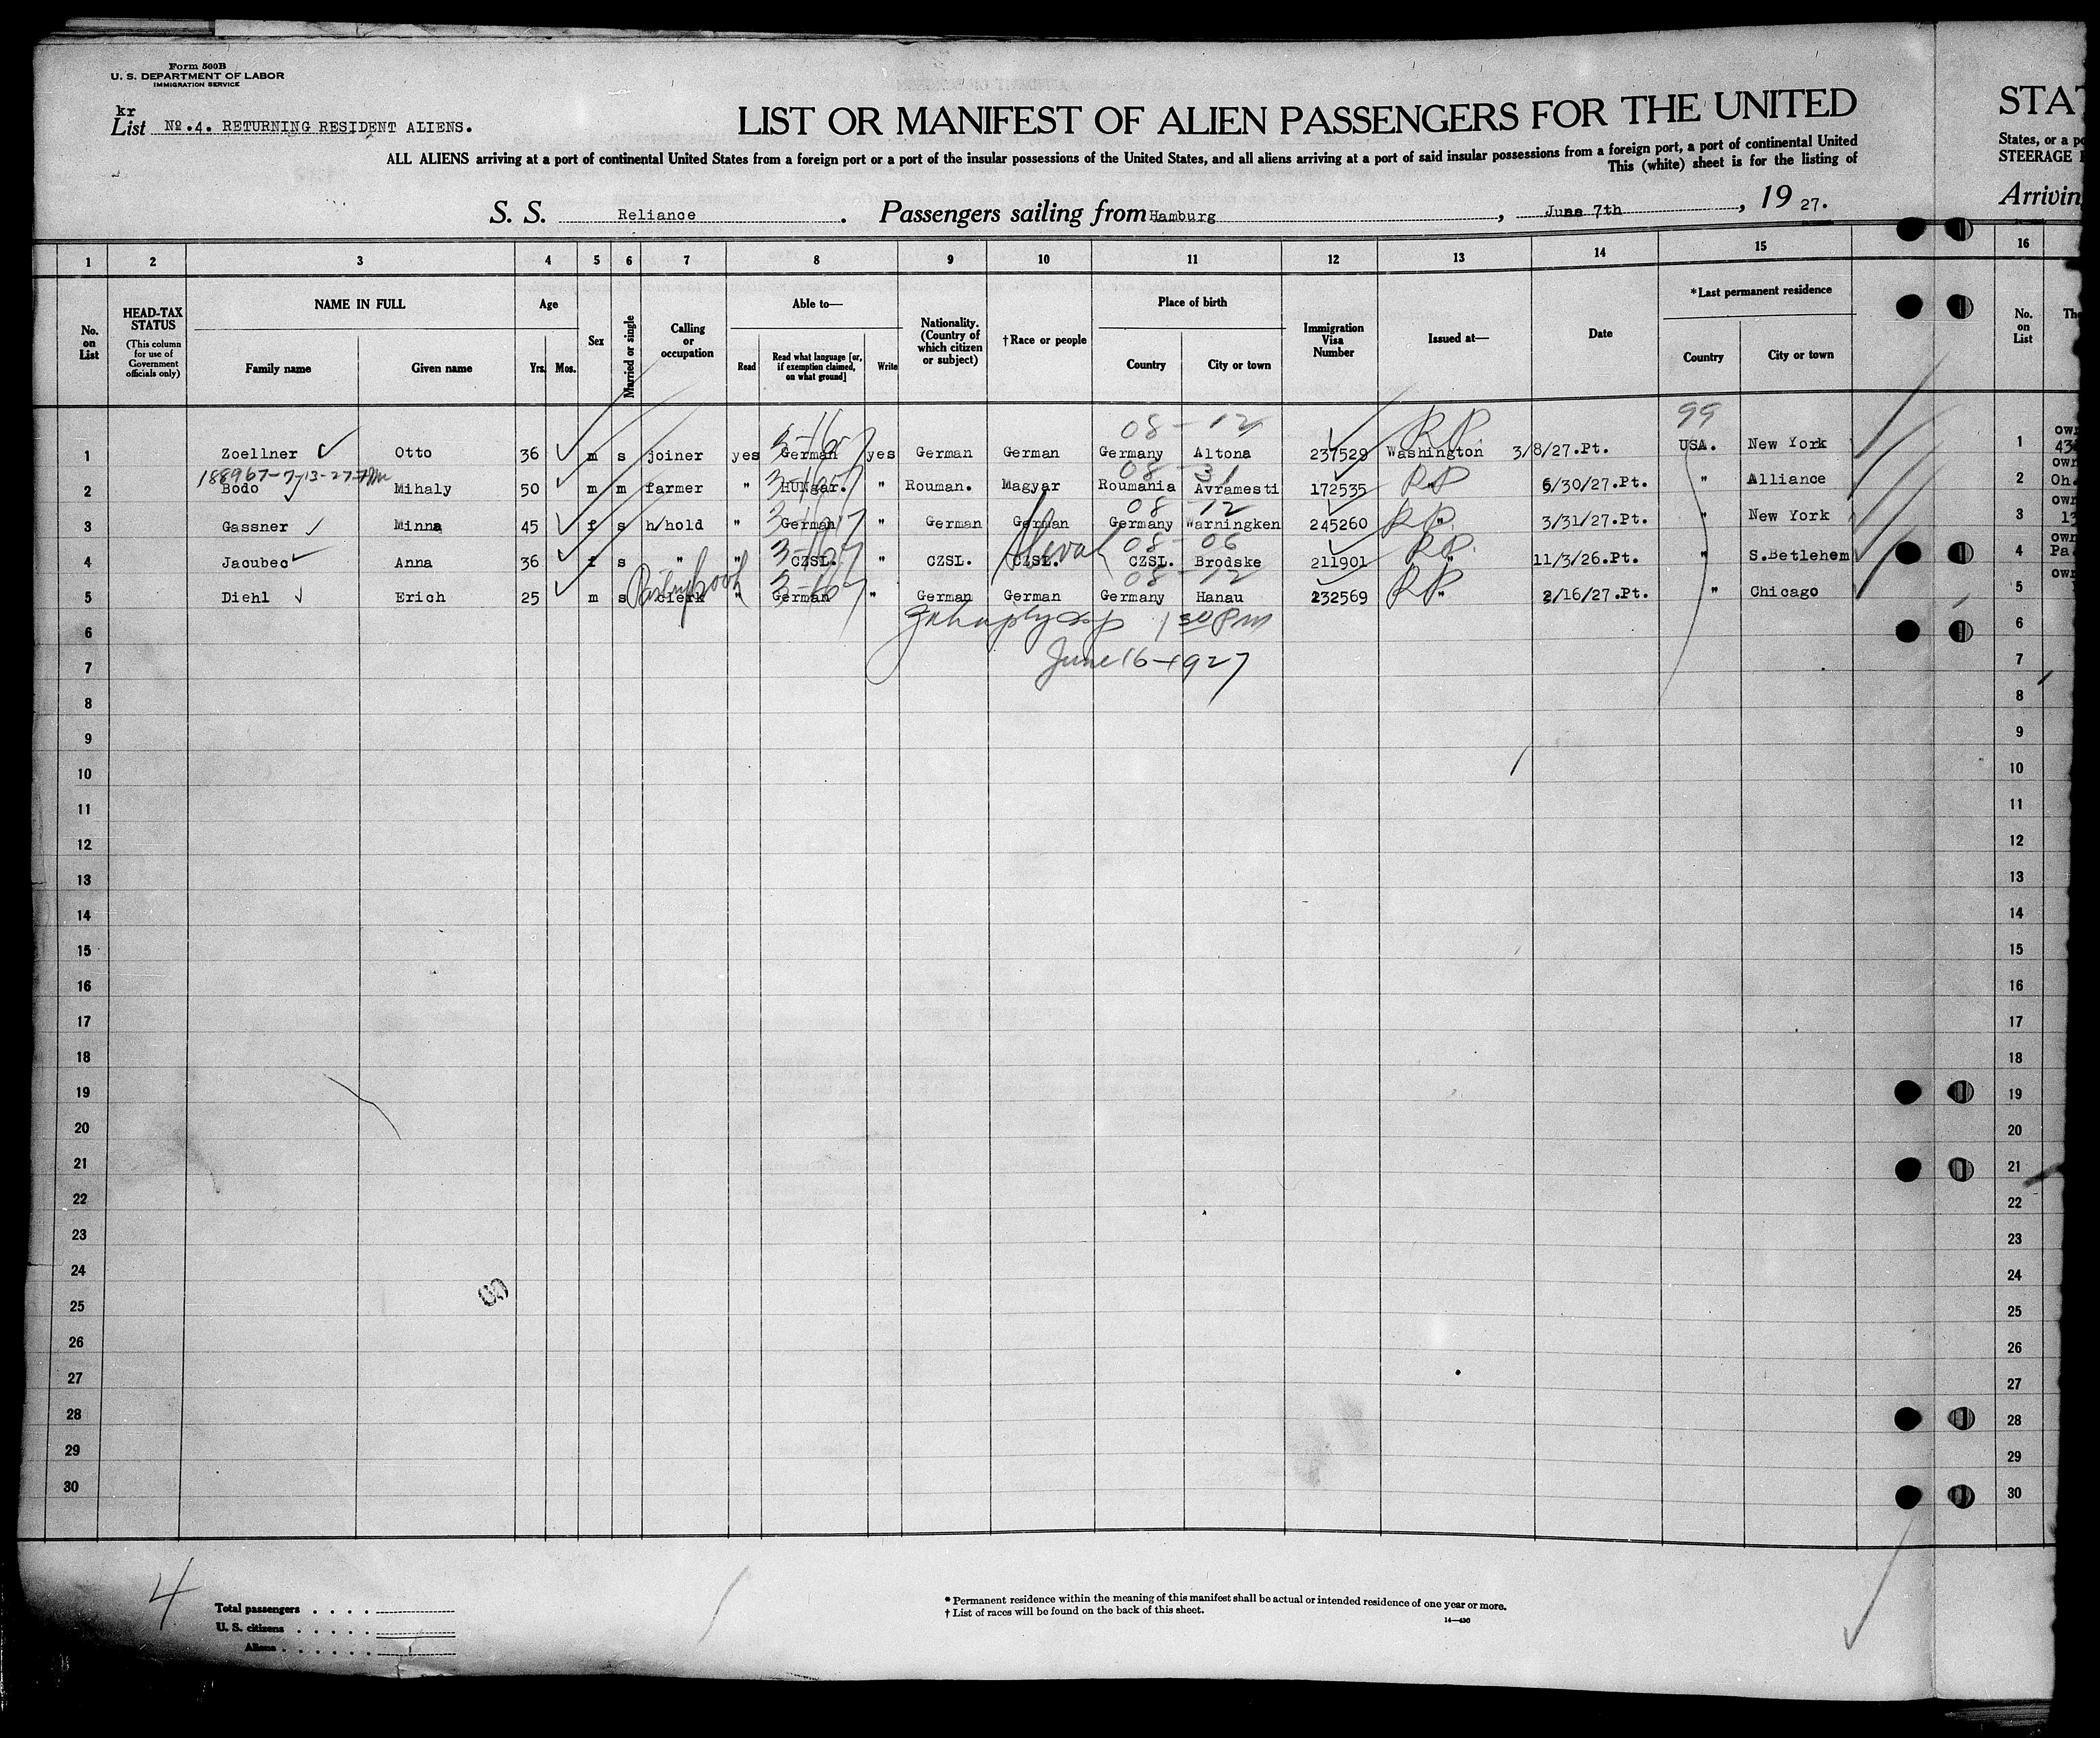 Form 500B
U. S. DEPARTMENT OF LABOR
IMMIGRATION SERVICE
kr
List No.4. RETURNING RESIDENT ALIENS.
LIST OR MANIFEST OF ALIEN PASSENGERS FOR THE UNITED
STAT
ALL ALIENS arriving at a port of continental United States from a foreign port or a port of the insular possessions of the United States, and all aliens arriving at a port of said insular possessions from a foreign port, a port of continental United
States, or a po
This (white) sheet is for the listing of
STEERAGE P
S. S. Reliance. Passengers sailing from Hamburg, June 7th, 19 27.
Arrivin
1 2 3 4 5 6 7 8 9 10 11 12 13 14 15 16
No. on List
HEAD-TAX STATUS (This column for use of Government officials only)
NAME IN FULL
Family name
Given name
Age
Yrs. Mos.
Sex
Married or single
Calling or occupation
Able to—
Read
Read what language [or, if exemption claimed, on what ground]
Write
Nationality. (Country of which citizen or subject)
†Race or people
Place of birth
Country
City or town
Immigration Visa Number
Issued at—
Date
*Last permanent residence
Country
City or town
No. on List
The
08-12 RP 99
1 Zoellner Otto 36 m s joiner yes German yes German German Germany Altona 237529 Washington 3/8/27.Pt. USA. New York 1 own 43
188967-7-13-27 08 31 RP
2 Bodo Mihaly 50 m m farmer " HUNgar. " Rouman. Magyar Roumania Avramesti 172535 " 6/30/27.Pt. " Alliance 2 own Oh.
08 12 RP
3 Gassner Minna 45 f s h/hold " German " German German Germany Warningken 245260 " 3/31/27.Pt. " New York 3 own 13
Slovak 08-06 RP
4 Jacubec Anna 36 f s " " CZSL. " CZSL. CZSL. CZSL. Brodske 211901 " 11/3/26.Pt. " S.Betlehem 4 own Pa.
08-12 RP
5 Diehl Erich 25 m s clerk " German " German German Germany Hanau 232569 " 2/16/27.Pt. " Chicago 5 own
1 30 Pm
June 16-1927
6 6
7 7
8 8
9 9
10 10
11 11
12 12
13 13
14 14
15 15
16 16
17 17
18 18
19 19
20 20
21 21
22 22
23 23
24 24
25 25
26 26
27 27
28 28
29 29
30 30
4
Total passengers
U. S. citizens
Aliens
* Permanent residence within the meaning of this manifest shall be actual or intended residence of one year or more.
† List of races will be found on the back of this sheet.
14—430